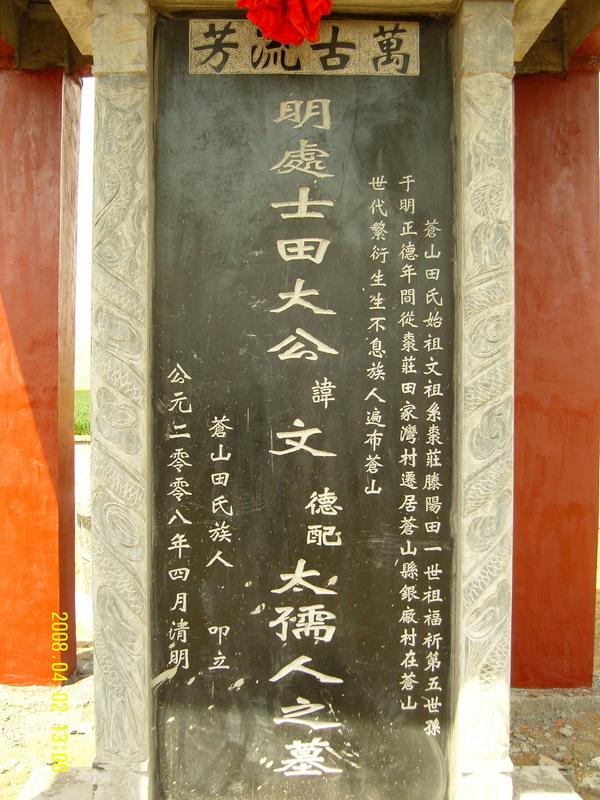 萬古流芳
蒼山田氏始祖文祖系棗莊滕陽田一世祖福祈第五世孫
于明正德年間從棗莊田家灣村遷居蒼山縣銀廠村在蒼山
世代繁衍生生不息族人遍布蒼山
明處士田大公諱文德配太孺人之墓
蒼山田氏族人 叩立
公元二零零八年四月清明
2008.04.02 13:0